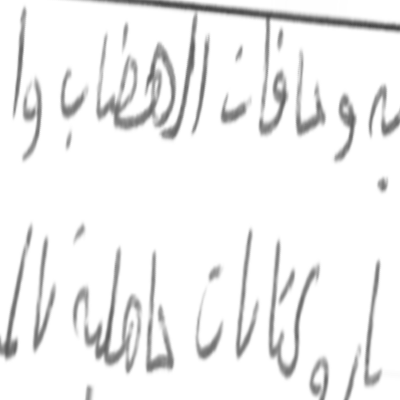 به وحافات الهضاب وا
ار وكتابات جاهلية بال